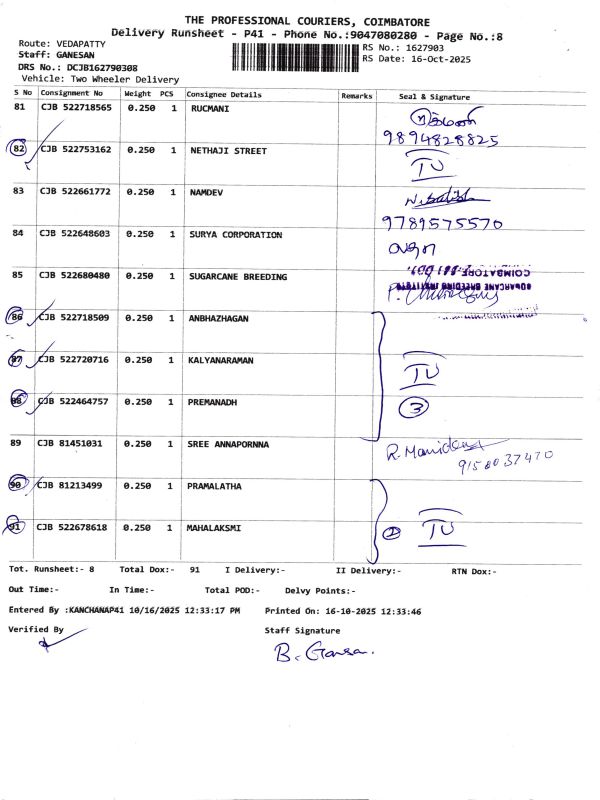 THE PROFESSIONAL COURIERS, COIMBATORE
Delivery Runsheet - P41 - Phone No.:9047080280 - Page No.:8
Route: VEDAPATTY
Staff: GANESAN
DRS No.: DCJB162790308
Vehicle: Two Wheeler Delivery
RS No.: 1627903
RS Date: 16-Oct-2025
S No Consignment No Weight PCS Consignee Details Remarks Seal & Signature
81 CJB 522718565 0.250 1 RUCMANI
9894828825
82 CJB 522753162 0.250 1 NETHAJI STREET IU
83 CJB 522661772 0.250 1 NAMDEV
9789575570
84 CJB 522648603 0.250 1 SURYA CORPORATION
85 CJB 522680480 0.250 1 SUGARCANE BREEDING
SUGARCANE BREEDING INSTITUTE
COIMBATORE
86 CJB 522718509 0.250 1 ANBHAZHAGAN
87 CJB 522720716 0.250 1 KALYANARAMAN IU
88 CJB 522464757 0.250 1 PREMANADH 3
89 CJB 81451031 0.250 1 SREE ANNAPORNNA
90 CJB 81213499 0.250 1 PRAMALATHA
91 CJB 522678618 0.250 1 MAHALAKSMI 2 IU
Tot. Runsheet:- 8 Total Dox:- 91 I Delivery:- II Delivery:- RTN Dox:-
Out Time:- In Time:- Total POD:- Delvy Points:-
Entered By :KANCHANAP41 10/16/2025 12:33:17 PM Printed On: 16-10-2025 12:33:46
Verified By Staff Signature